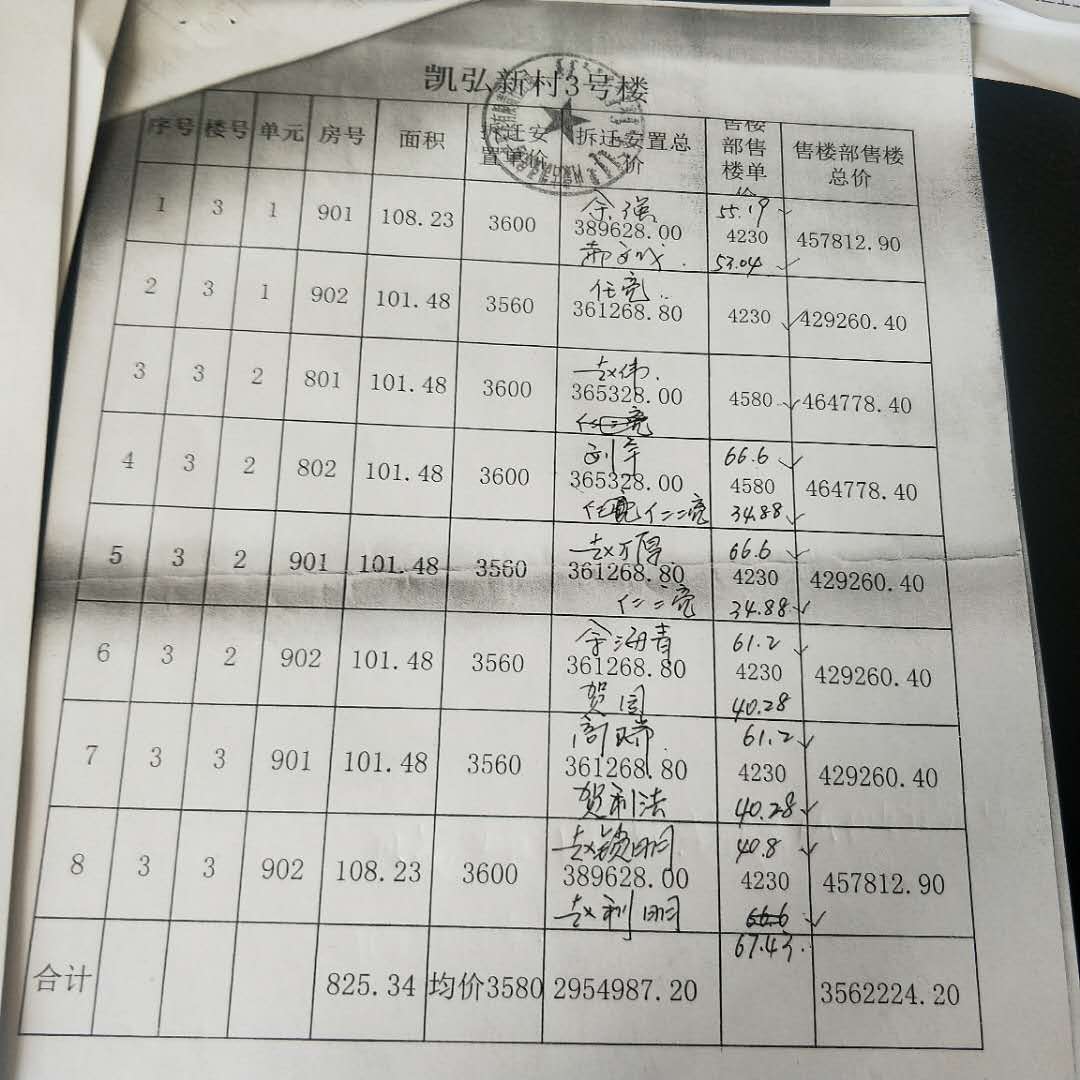 凯弘新村3号楼
序号 楼号 单元 房号 面积 拆迁安置单价 拆迁安置总价 售楼部售楼单价 售楼部售楼总价
余强 55.19
1 3 1 901 108.23 3600 389628.00 4230 457812.90
53.04
任亮
2 3 1 902 101.48 3560 361268.80 4230 429260.40
赵伟
3 3 2 801 101.48 3600 365328.00 4580 464778.40
任二亮
刘军 66.6
4 3 2 802 101.48 3600 365328.00 4580 464778.40
任二亮 34.88
66.6
5 3 2 901 101.48 3560 361268.80 4230 429260.40
任二亮 34.88
余海青 61.2
6 3 2 902 101.48 3560 361268.80 4230 429260.40
贺园 40.28
高瑞 61.2
7 3 3 901 101.48 3560 361268.80 4230 429260.40
贺利法 40.28
赵锁明 40.8
8 3 3 902 108.23 3600 389628.00 4230 457812.90
赵利明 66.6
67.43
合计 825.34 均价3580 2954987.20 3562224.20